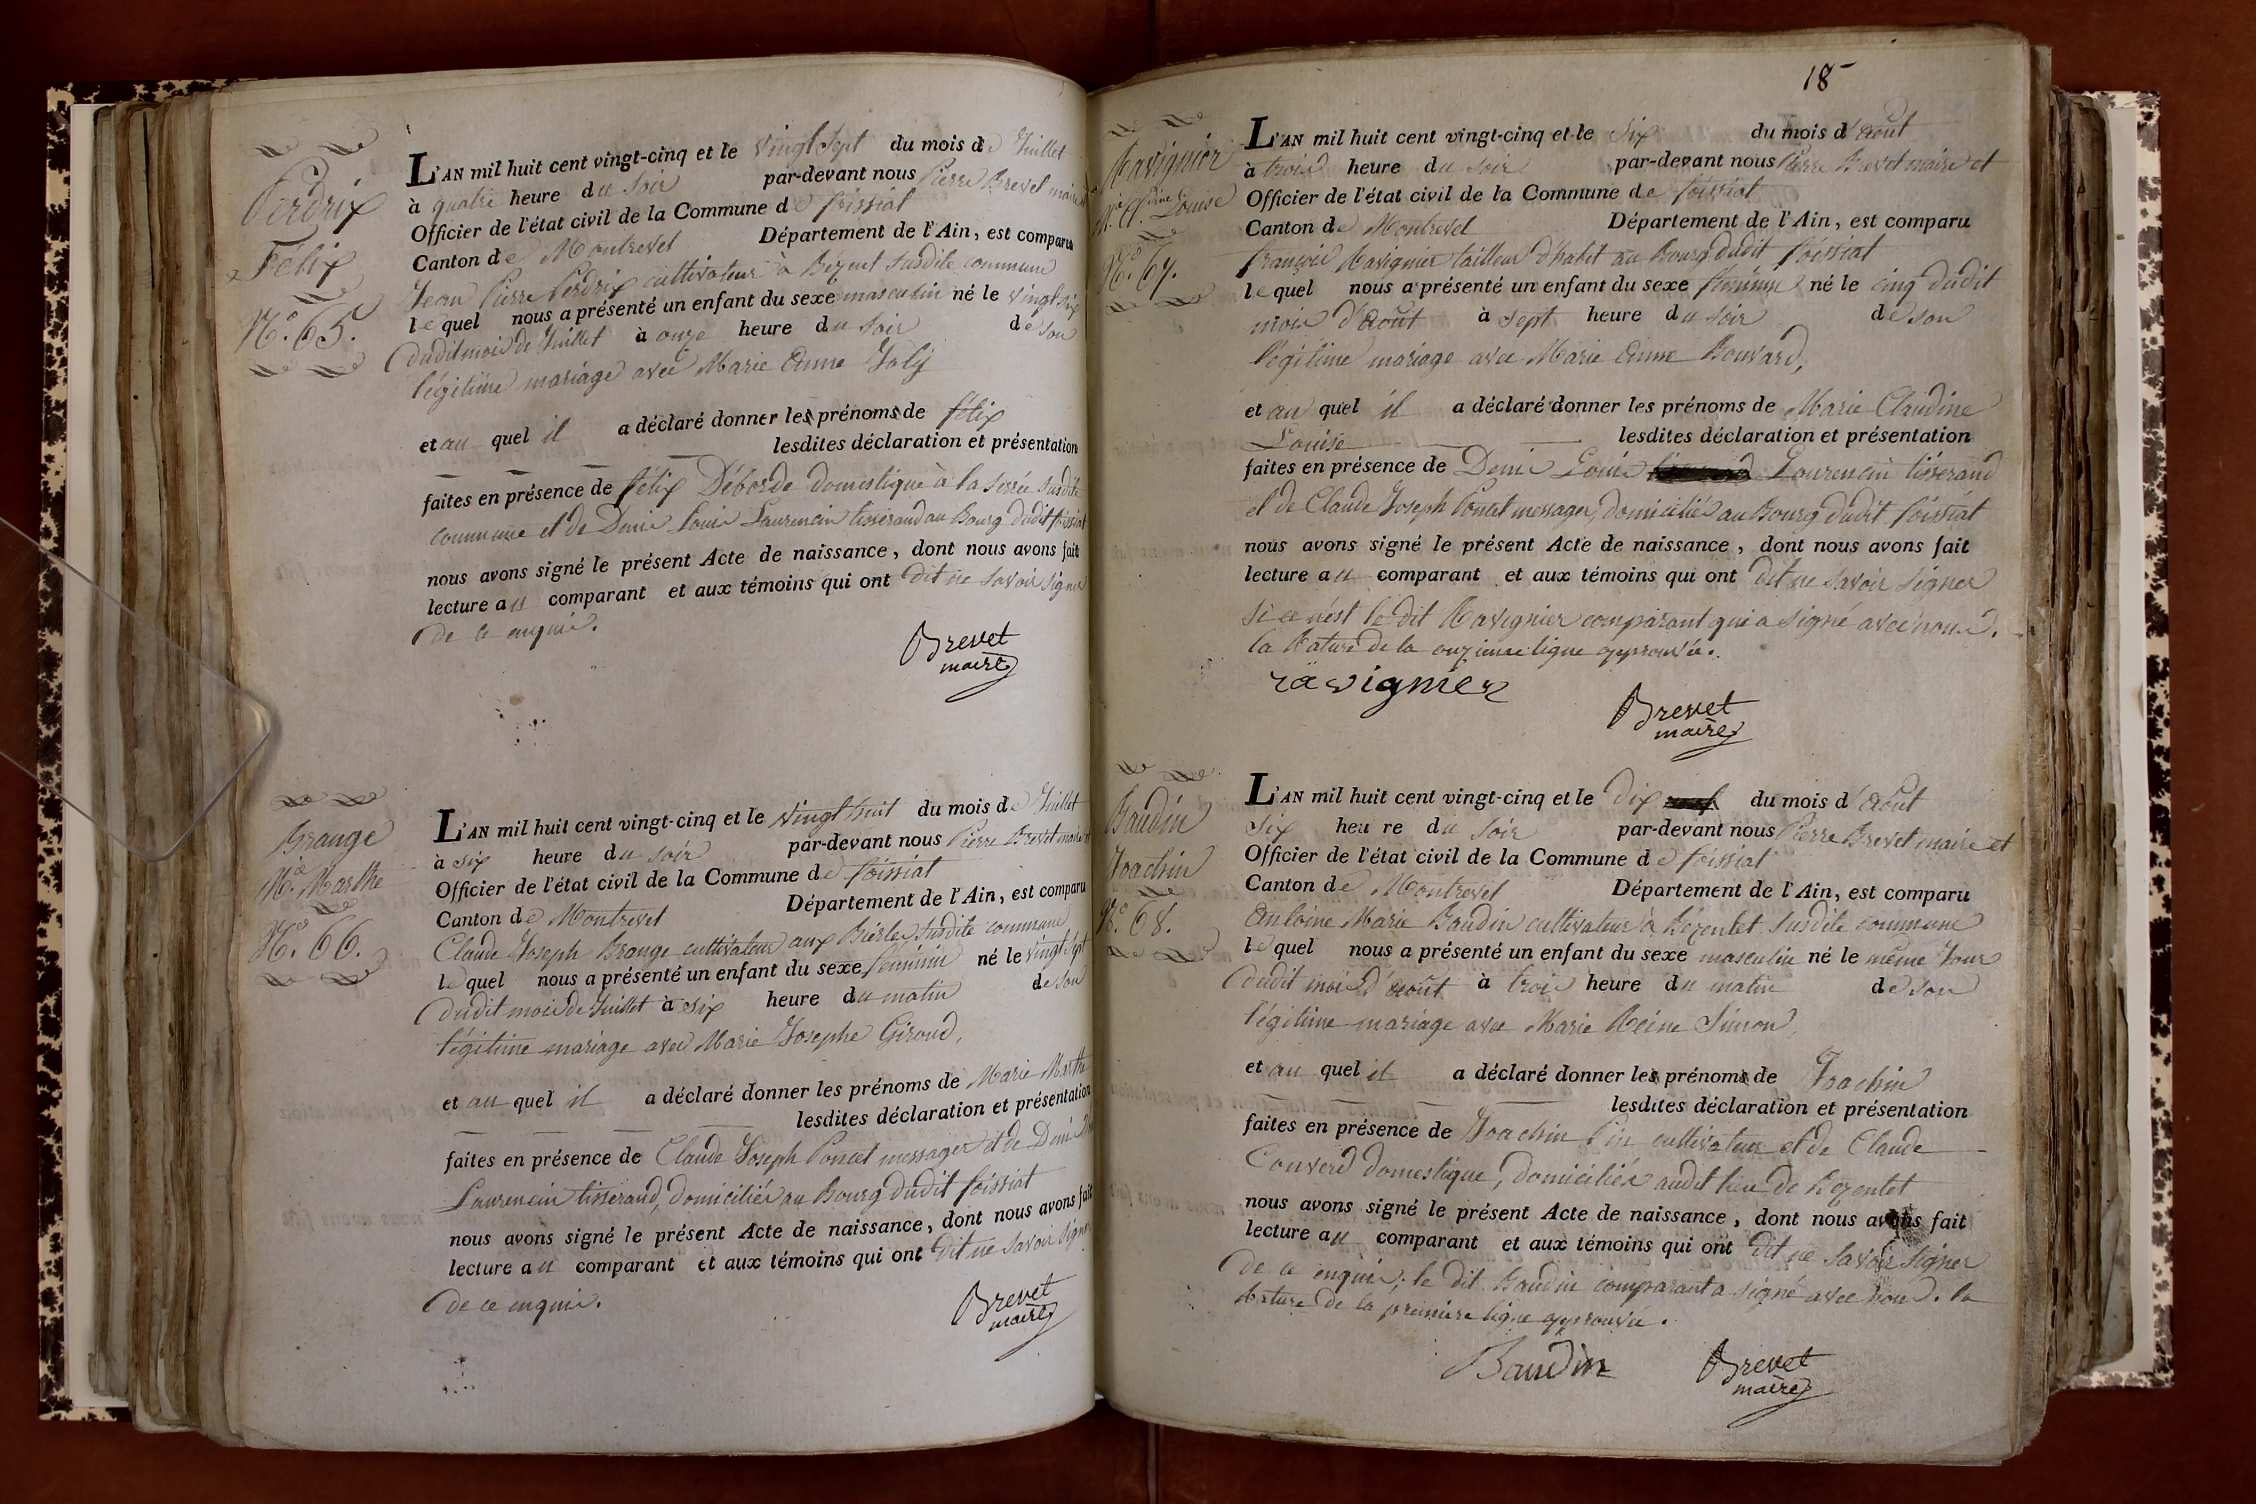 Perdrix
Félix
N.o 65.
L'AN mil huit cent vingt-cinq et le vingt sept du mois de Juillet
à quatre heure du soir par-devant nous Pierre Brevet maire et
Officier de l'état civil de la Commune de foissiat
Canton de Montrevel Département de l'Ain, est comparu
Jean Pierre Perdrix cultivateur à susdite commune
lequel nous a présenté un enfant du sexe masculin né le vingt six
dudit mois de Juillet à onze heure du soir de son
légitime mariage avec Marie Anne Joly
et au quel il a déclaré donner les prénoms de félix
lesdites déclaration et présentation
faites en présence de félix Déborde domestique à la serrée susdite
commune et de Denis Louis Laurencin tisserand au Bourg dudit foissiat
nous avons signé le présent Acte de naissance, dont nous avons fait
lecture au comparant et aux témoins qui ont dit ne savoir signer
de ce enquis.
Brevet
maire
Brange
M.ie Marthe
N.o 66.
L'AN mil huit cent vingt-cinq et le vingt huit du mois de Juillet
à six heure du soir par-devant nous Pierre Brevet maire et
Officier de l'état civil de la Commune de foissiat
Canton de Montrevel Département de l'Ain, est comparu
Claude Joseph Brange cultivateur aux susdite commune
lequel nous a présenté un enfant du sexe féminin né le vingt sept
dudit mois de Juillet à six heure du matin de son
légitime mariage avec Marie Josephe Giroud,
et au quel il a déclaré donner les prénoms de Marie Marthe
lesdites déclaration et présentation
faites en présence de Claude Joseph Poncet messager et de Denis
Laurencin tisserand, domiciliés au Bourg dudit foissiat
nous avons signé le présent Acte de naissance, dont nous avons fait
lecture au comparant et aux témoins qui ont dit ne savoir signer
de ce enquis.
Brevet
maire
18
Ravignier
M.ie Cl.dine Louise
N.o 67.
L'AN mil huit cent vingt-cinq et le six du mois d'août
à trois heure du soir par-devant nous Pierre Brevet maire et
Officier de l'état civil de la Commune de foissiat
Canton de Montrevel Département de l'Ain, est comparu
françois Ravignier tailleur d'habit au Bourg dudit foissiat
lequel nous a présenté un enfant du sexe féminin né le cinq dudit
mois d'août à sept heure du soir de son
légitime mariage avec Marie Anne Bouvard,
et au quel il a déclaré donner les prénoms de Marie Claudine
Louise lesdites déclaration et présentation
faites en présence de Denis Louis Laurencin tisserand
et de Claude Joseph Poncet messager, domiciliés au Bourg dudit foissiat
nous avons signé le présent Acte de naissance, dont nous avons fait
lecture au comparant et aux témoins qui ont dit ne savoir signer
si ce n'est le dit Ravignier comparant qui a signé avec nous.
la Rature de la onzieme ligne approuvée.
ravignier
Brevet
maire
Baudin
Joachin
N.o 68.
L'AN mil huit cent vingt-cinq et le dix du mois d'août
six heure du soir par-devant nous Pierre Brevet maire et
Officier de l'état civil de la Commune de foissiat
Canton de Montrevel Département de l'Ain, est comparu
Antoine Marie Baudin cultivateur à Bezentet susdite commune
lequel nous a présenté un enfant du sexe masculin né le même jour
dudit mois d'août à trois heure du matin de son
légitime mariage avec Marie Reine Simon,
et au quel il a déclaré donner les prénoms de Joachin
lesdites déclaration et présentation
faites en présence de Joachin Pin cultivateur et de Claude
Couverd domestique, domiciliés audit lieu de Bezentet
nous avons signé le présent Acte de naissance, dont nous avons fait
lecture au comparant et aux témoins qui ont dit ne savoir signer
de ce enquis, le dit Baudin comparant a signé avec nous. la
Rature de la premiere ligne approuvée.
Baudin
Brevet
maire